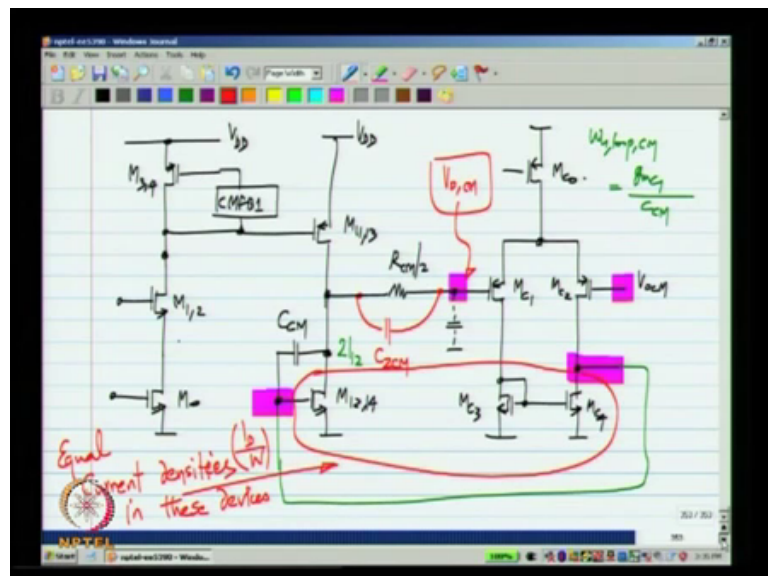 nptel-ee5390 - Windows Journal
File Edit View Insert Actions Tools Help
Page Width
B I
V_DD
V_DD
M_3,4
CMFB1
M_11,13
V_o,cm
M_c0
= g_mc1 / C_CM
R_cm/2
M_1,2
M_c1
M_c2
V_ocm
C_CM
C_2CM
M_0
M_12,14
M_c3
M_c4
Equal
Current densities (I_D/W)
in these devices
NPTEL
352 / 353
353
Start
nptel-ee5390 - Windo...
100%